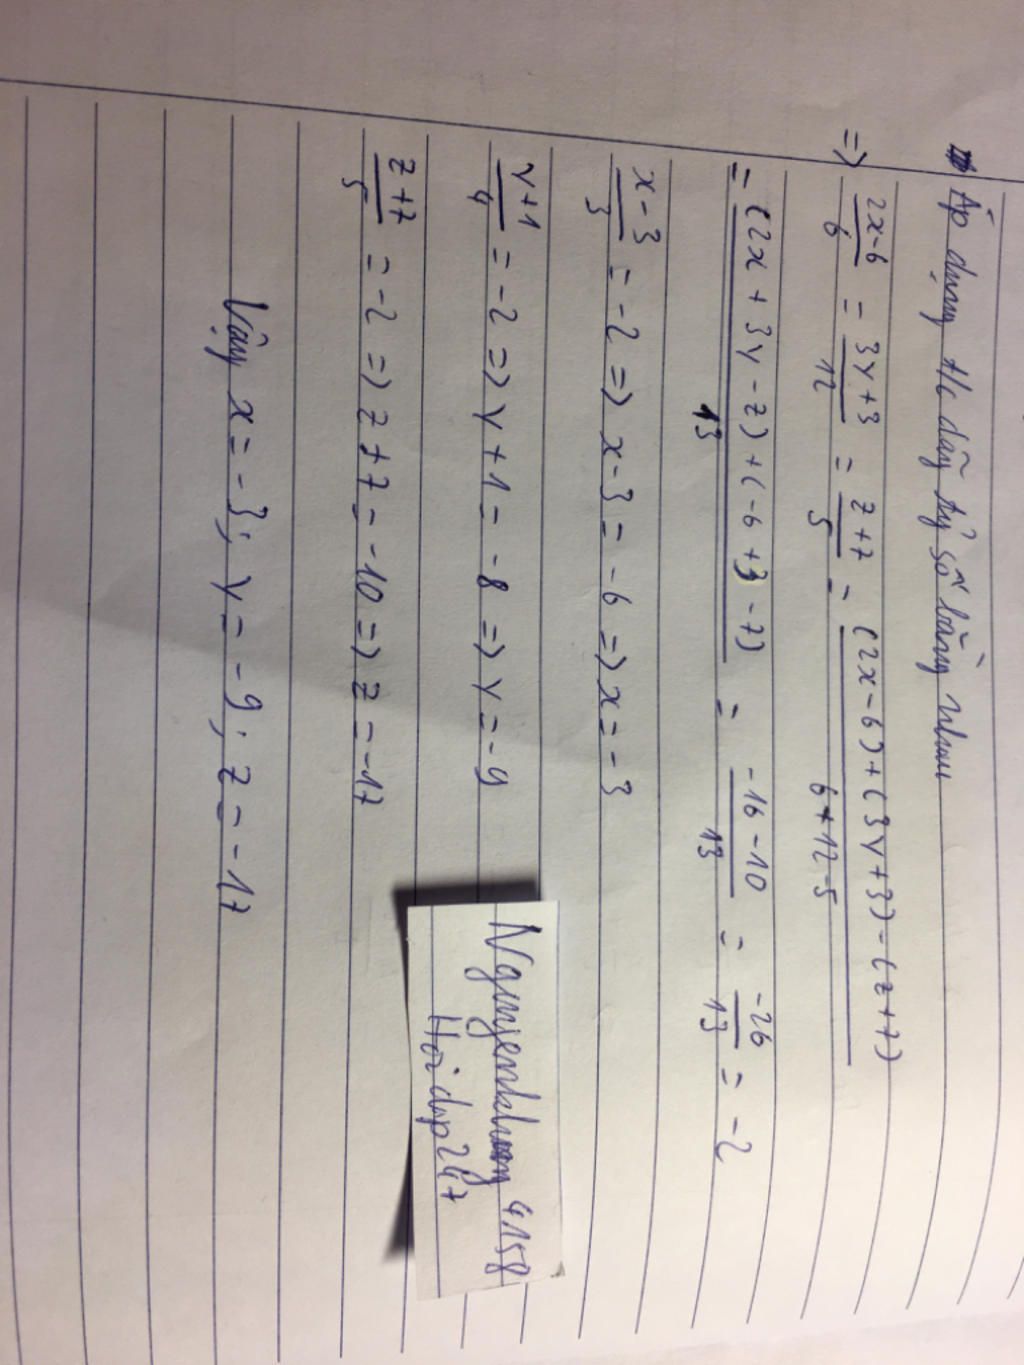 Áp dụng t/c dãy tỷ số bằng nhau
=> 2x-6/6 = 3y+3/12 = z+7/5 = (2x-6)+(3y+3)-(z+7)/6+12-5
= (2x+3y-z)+(-6+3-7)/13 = -16-10/13 = -26/13 = -2
x-3/3 = -2 => x-3 = -6 => x = -3
y+1/4 = -2 => y+1 = -8 => y = -9
z+7/5 = -2 => z+7 = -10 => z = -17
Vậy x = -3; y = -9; z = -17
Nguyenkhang 4158
Hoidap247